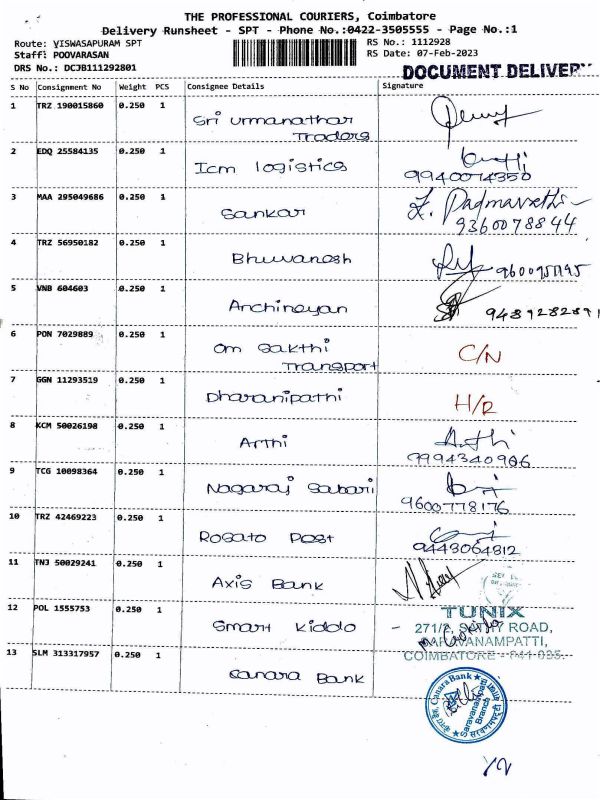 THE PROFESSIONAL COURIERS, Coimbatore
Delivery Runsheet - SPT - Phone No.:0422-3505555 - Page No.:1
Route: VISWASAPURAM SPT
RS No.: 1112928
Staff: POOVARASAN
RS Date: 07-Feb-2023
DRS No.: DCJB111292801
DOCUMENT DELIVERY
S No Consignment No Weight PCS Consignee Details Signature
1 TRZ 190015860 0.250 1 Sri Urmanathar
Traders
2 EDQ 25584135 0.250 1 Icm logistics
9940074350
3 MAA 295049686 0.250 1 Sankar
Z. Padmavathi
9360078844
4 TRZ 56950182 0.250 1 Bhuvanesh
5 VNB 604603 0.250 1 Anchineyan
6 PON 7029889 0.250 1 Om Sakthi
Transport
C/N
7 GGN 11293519 0.250 1 Dharanipathi
H/R
8 KCM 50026198 0.250 1 Arthi
Arthi
9994340906
9 TCG 10098364 0.250 1 Nagaraj Sabari
9600778176
10 TRZ 42469223 0.250 1 Rosato Post
9443064812
11 TNJ 50029241 0.250 1 Axis Bank
12 POL 1555753 0.250 1 Smart kiddo
TUNIX
271/2, SATHY ROAD,
SARAVANAMPATTI,
COIMBATORE - 641 035.
13 SLM 313317957 0.250 1 Canara Bank
Canara Bank
Saravanampatti
Branch